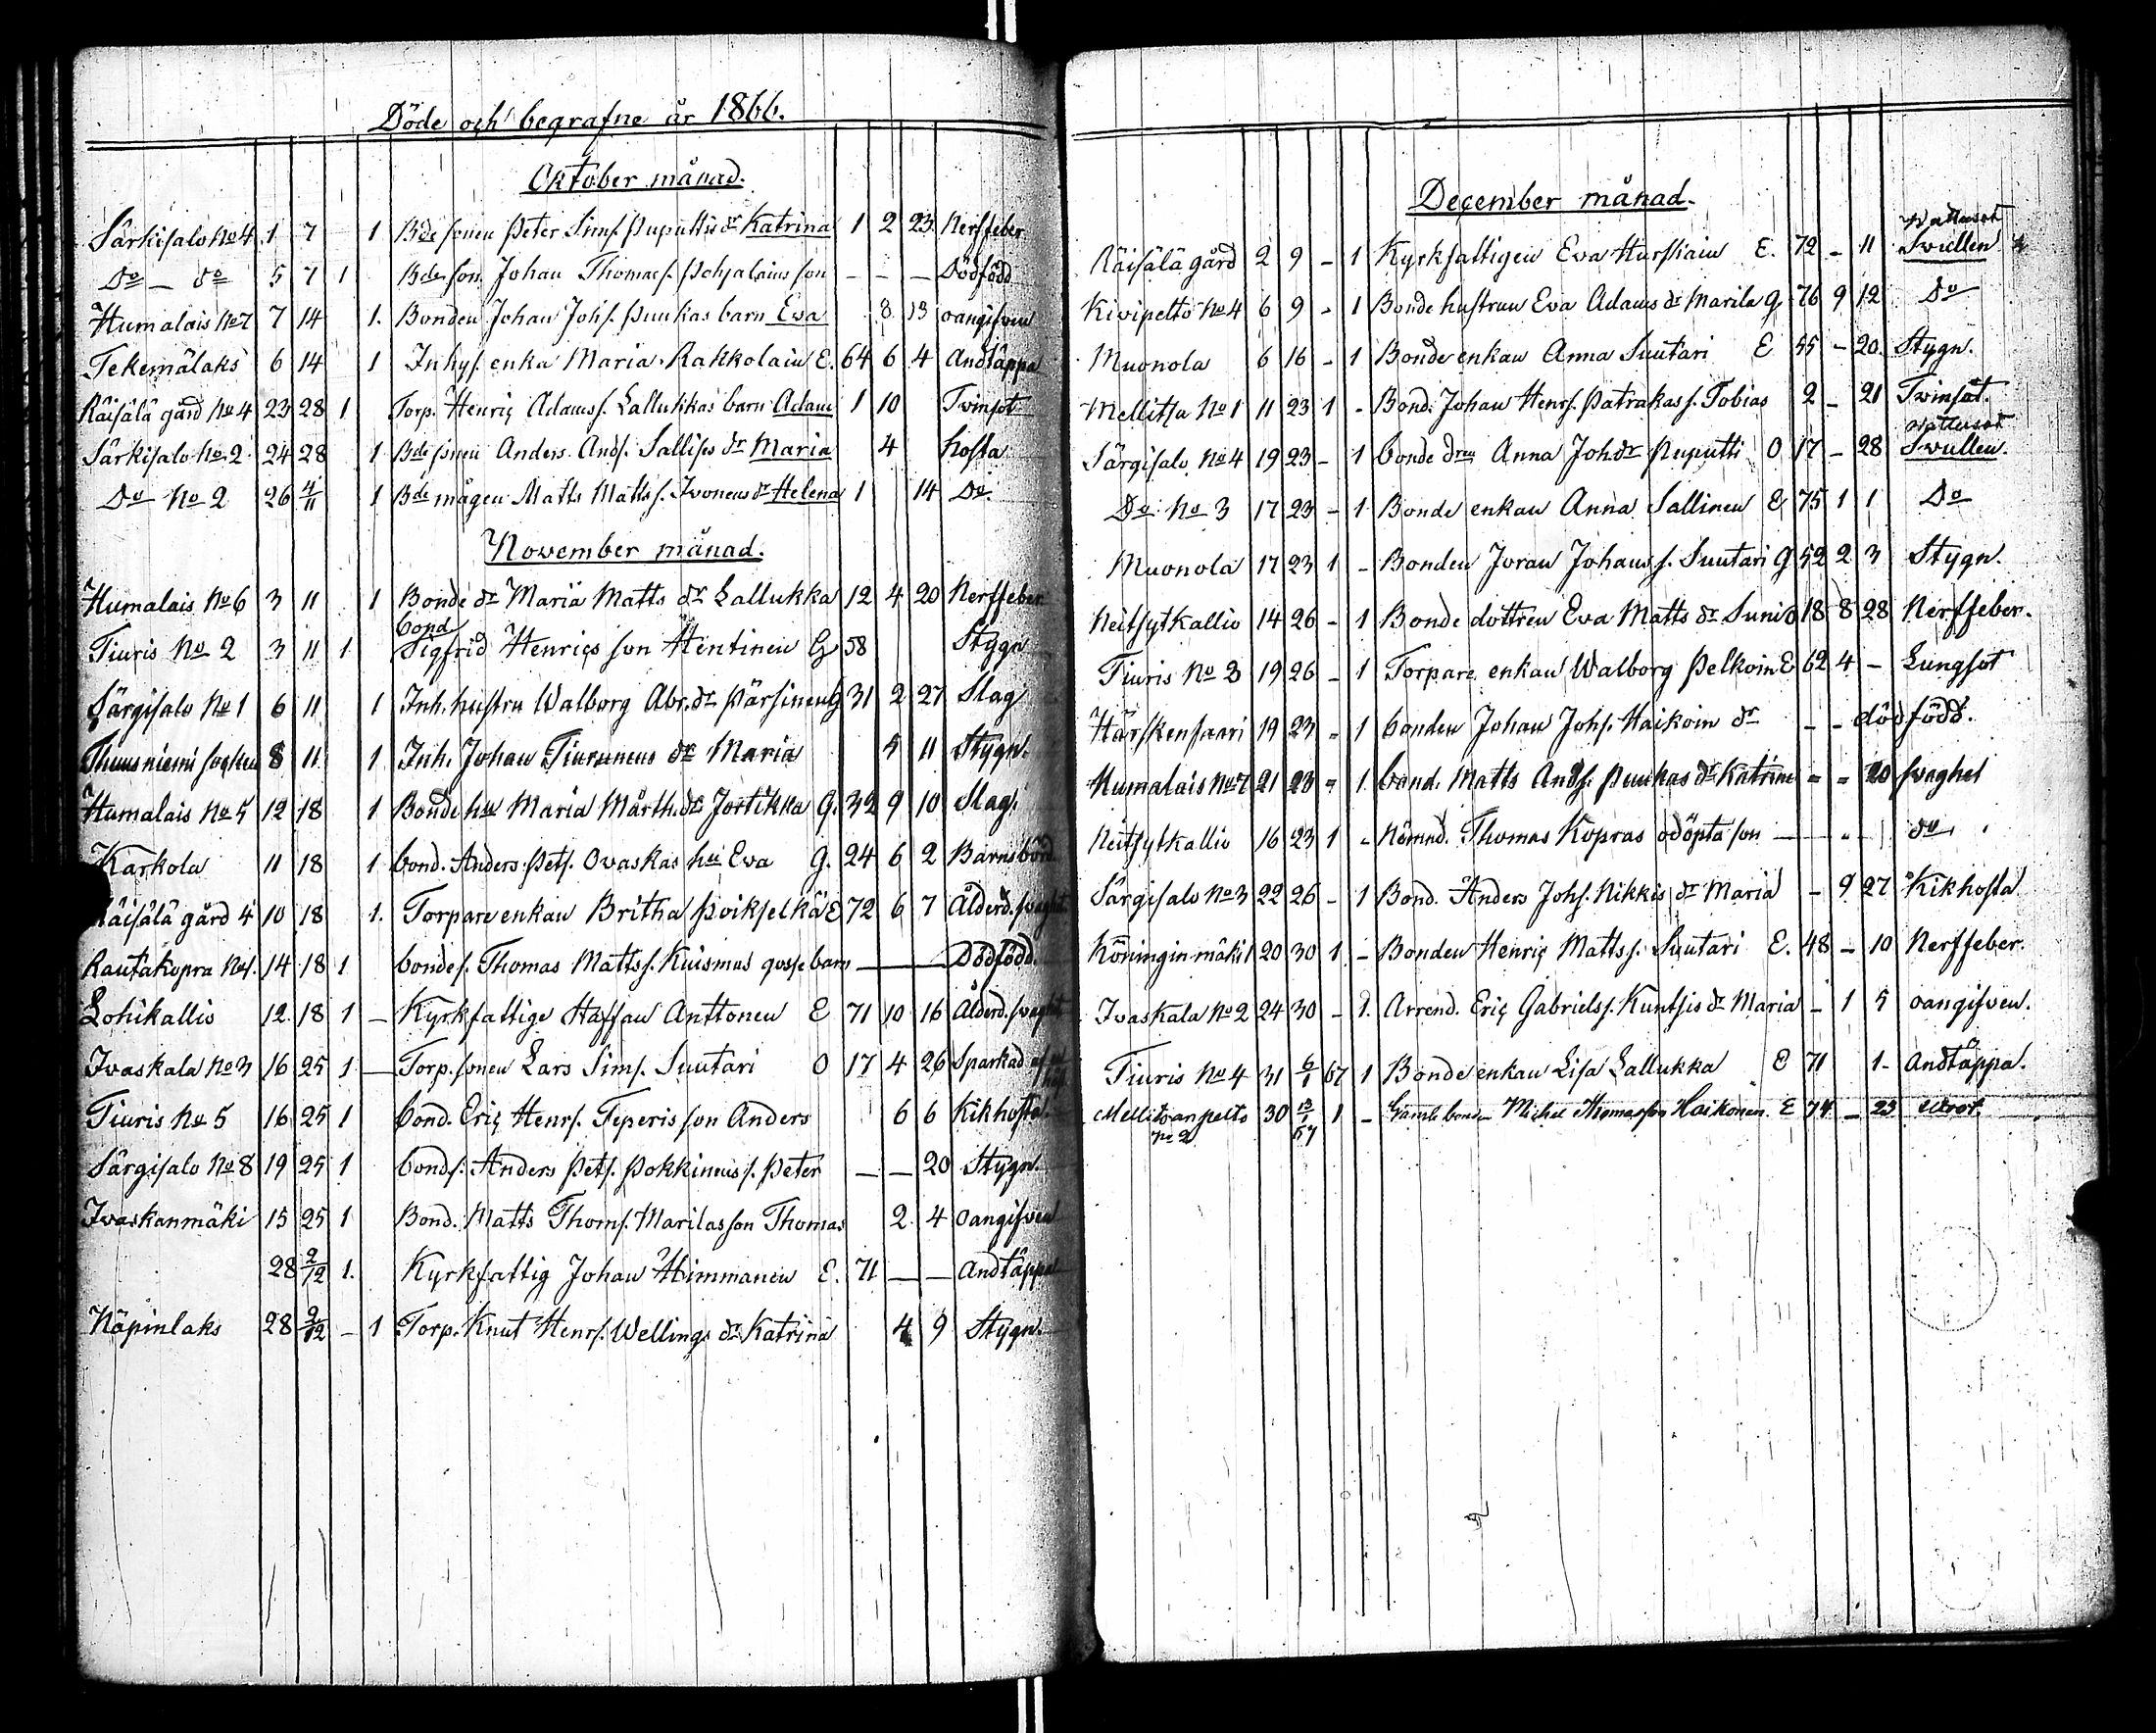 Döde och begrafne år 1866.
Oktober månad.
Särkisalo No 4 1 7 1 Bde sonen Peter Sims. Puputtis dr Katrina 1 2 23 Nerffeber
Do — do 5 7 1 Bde son Johan Thomas s. Pohjalains son — — — Dödfödd
Humalais No 7 7 14 1. Bonden Johan Johs. Puukas barn Eva 8 13 oangifven
Tekemälaks 6 14 1 Inhys. enka Maria Rakkolain E. 64 6 4 Andtäppa
Räisälä gård No 4 23 28 1 Torp. Henric Adams s. Lallukkas barn Adam 1 10 Twinsot
Särkisalo No 2 24 28 1 Bde sonen Anders Ands. Sallises dr Maria 4 hosta
Do No 2 26 4/11 1 Bde mågen Matts Matts s. Ivonens dr Helena 1 14 Do
November månad.
Humalais No 6 3 11 1 Bonde dr Maria Matts dr Lallukka 12 4 20 Nerffeber
bond
Tiuris No 2 3 11 1 Sigfrid Henrics son Hentinen G 58 Stygn
Särgisalo No 1 6 11 1 Inh. hustru Walborg Abr. dr Pärsinen G 31 2 27 Slag
socken 8 11 1 Inh. Johan Tiurunens dr Maria 5 11 Stygn.
Humalais No 5 12 18 1 Bonde hu Maria Mårth. dr Jortikka G. 32 9 10 Slag.
Karkola 11 18 1 bond. Anders Pets. Ovaskas hu Eva G. 24 6 2 Barnsbörd
Räisälä gård 4 10 18 1. Torpare enkan Britha Poikselkä E 72 6 7 Ålderd. svaght.
Rautakopra No 1. 14 18 1 bondes. Thomas Matts s. Kuismas gosse barn — — — Dödfödd.
Lohikallio 12 18 1 — Kyrkfattige Staffan Anttonen E 71 10 16 Ålderd. svaght
Ivaskala No 3 16 25 1 — Torp. sonen Lars Sims. Suutari O 17 4 26 Sparkad af
Tiuris No 5 16 25 1 bond. Eric Henrs. Teperis son Anders 6 6 Kikhosta
Särgisalo No 8 19 25 1 bonds. Anders Pets. Pokkinens s. Peter — — 20 Stygn.
Ivaskanmäki 15 25 1 Bond. Matts Thoms. Marilas son Thomas 2 4 oangifven
28 2/12 1. Kyrkfattig Johan Himmanen E. 71 — — Andtäppa
Näpinlaks 28 2/12 — 1 Torp. Knut Henrs. Wellings dr Katrina 4 9 Stygn.
December månad.
Wattusot
Räisälä gård 2 9 - 1 Kyrkfattigen Eva Hurskain E. 72 - 11 Svullen
Kivipelto No 4 6 9 - 1 Bonde hustrun Eva Adams dr Marila G 76 9 12 Do
Muonola 6 16 - 1 Bonde enkan Anna Suutari E 55 - 20. Stygn.
Mellitsa No 1 11 23 1 - Bond. Johan Henrs. Patrakas s. Tobias 2 - 21 Twinsot.
wattusot
Särgisalo No 4 19 23 - 1 bonde dren Anna Joh dr Puputti O 17 - 28 Svullen.
Do No 3 17 23 - 1 Bonde enkan Anna Sallinen E 75 1 1 Do
Muonola 17 23 1 - Bonden Joran Johans s. Suutari G 52 2 3 Stygn.
Neitsytkallio 14 26 - 1 Bonde dottren Eva Matts dr Suni O 18 8 28 Nerffeber.
Tiuris No 3 19 26 - 1 Torpare enkan Walborg Pelkoin E 62 4 - Lungsot
Härskensaari 19 23 - 1 bonden Johan Johs. Haikoin dr - - dödfödd.
Humalais No 7 21 23 - 1. band. Matts Ands. Puukas dr Katrine - - 20 svaghet
Neitsytkallio 16 23 1 - Nämnd. Thomas Kopras odöpta son — - - do
Särgisalo No 3 22 26 - 1 Bond. Anders Johs. Nikkis dr Maria - 9 27 Kikhosta
Köninginmäki 1 20 30 1 - Bonden Henric Matts s. Suutari E. 48 - 10 Nerffeber.
Ivaskala No 2 24 30 - 1. Arrend. Eric Gabriels s. Kuntsis dr Maria - 1 5 oangifven.
Tiuris No 4 31 6/1 67 1 Bonde enkan Lisa Lallukka E 71 1- Andtäppa.
30 13/1 67 1 - Gamle bonden Michel Thomasson Haikonen E 74 - 23
No 2